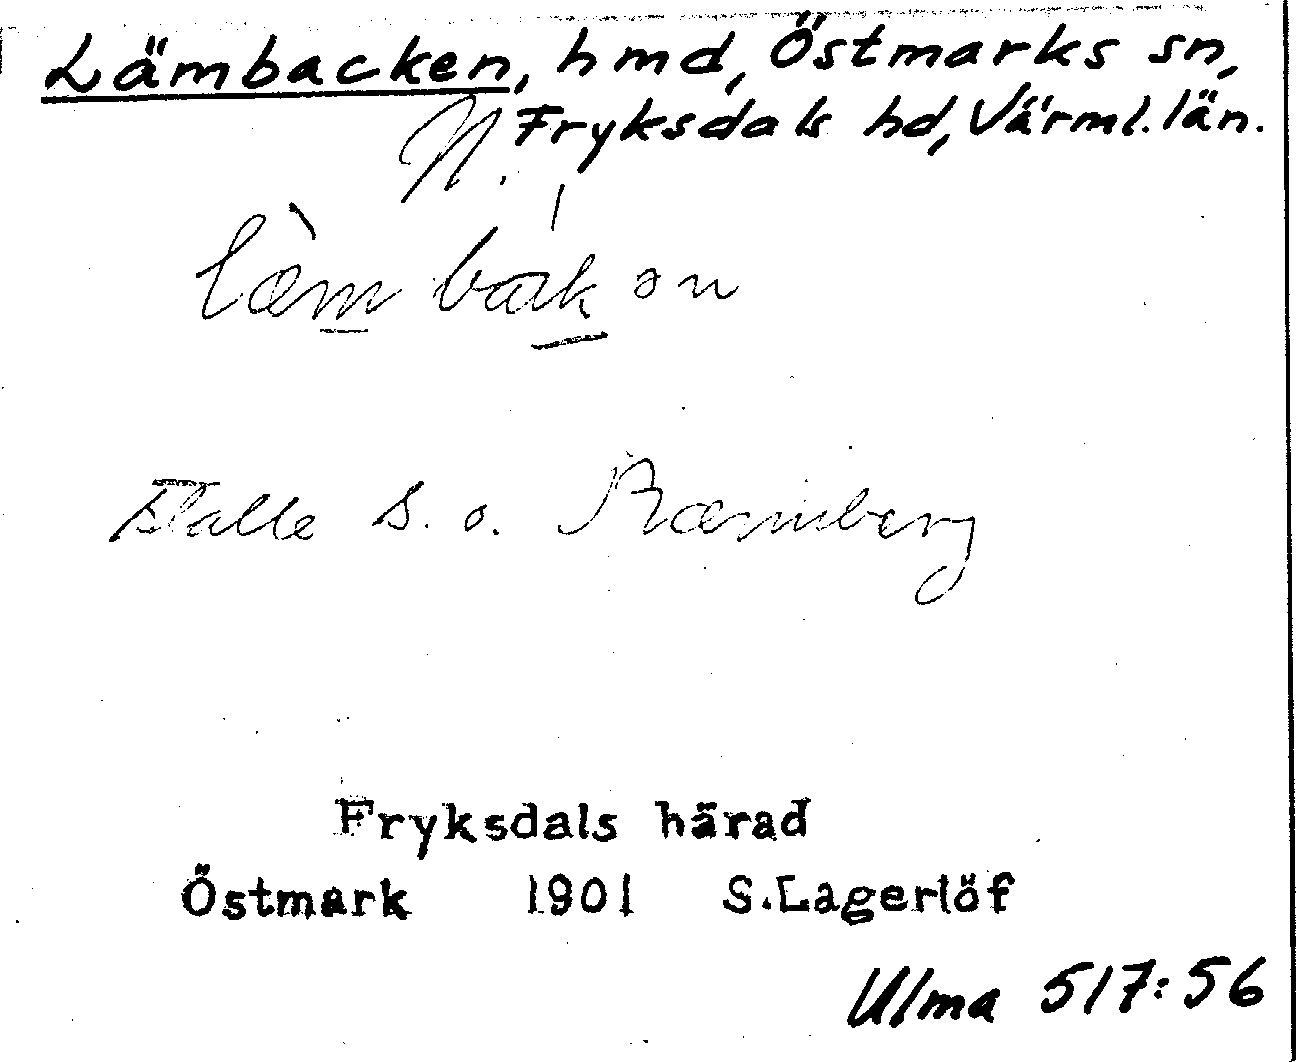 Lämbacken, hmd, Östmarks sn,
N. Fryksdals hd, Värml. län.
læm bak on
S. o. Ræmmberg
Fryksdals härad
Östmark 1901 S.Lagerlöf
Ulma 517:56